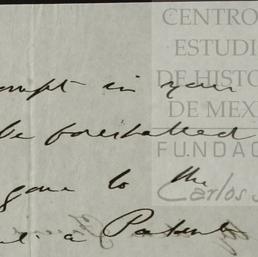 CENTRO
ESTUDI
DE HISTO
DE MEX
FUNDAC
Carlos S
in your
be forestalled
gone to the
a Patent